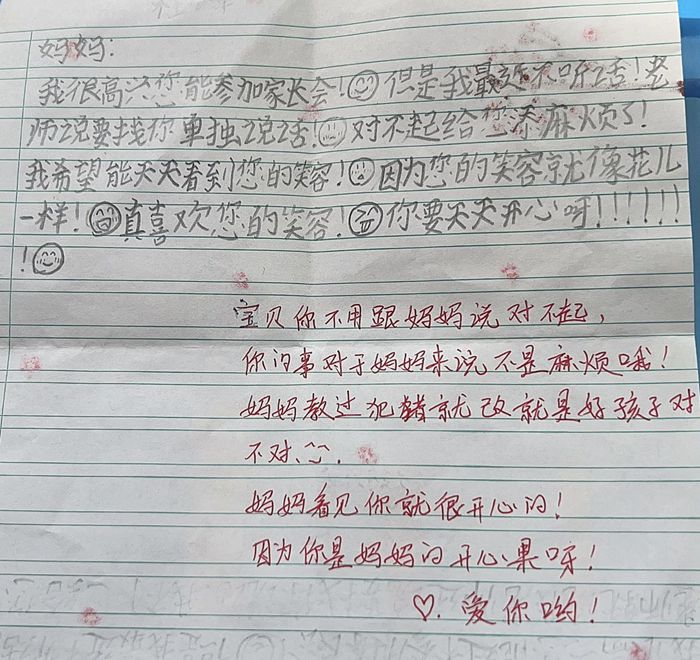 妈妈:
我很高兴您能参加家长会!😊但是我最近不听话!老
师说要找你单独说话!😊对不起给您添麻烦了!
我希望能天天看到您的笑容!😊因为您的笑容就像花儿
一样!😊真喜欢您的笑容!😊你要天天开心呀!!!!!!
!😊
宝贝你不用跟妈妈说对不起,
你的事对于妈妈来说不是麻烦哦!
妈妈教过犯错就改就是好孩子对
不对、^_^.
妈妈看见你就很开心的!
因为你是妈妈的开心果呀!
♡.爱你哟!